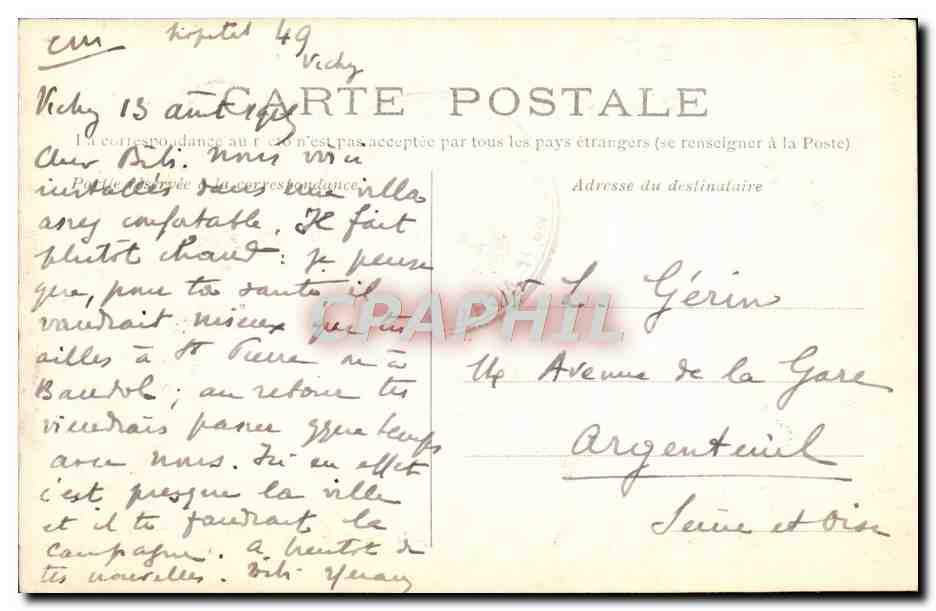 hopital 49
Vichy
CARTE POSTALE
La correspondance au recto n'est pas acceptée par tous les pays étrangers (se renseigner à la Poste)
Partie réservée à la correspondance
Adresse du destinataire
Vichy 13 août 1915
Cher Bili. Nous voici
installés dans une villa
assez confortable. Il fait
plutôt chaud : je pense
que, pour ta santé, il
vaudrait mieux que tu
ailles à St Pierre ou à
Bandol ; au retour tu
viendrais passer qque temps
avec nous. Ici en effet
c'est presque la ville
et il te faudrait la
campagne. A bientôt de
tes nouvelles.
L. Gérin
14 Avenue de la Gare
Argenteuil
Seine et Oise
CPAPHIL